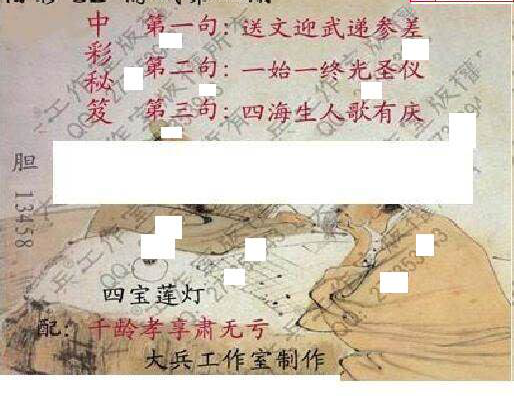 中彩秘笈
第一句：送文迎武递参差
第二句：一始一终光圣仪
第三句：四海生人歌有庆
胆 13458
四宝莲灯
配：千龄孝享肃无亏
大兵工作室制作